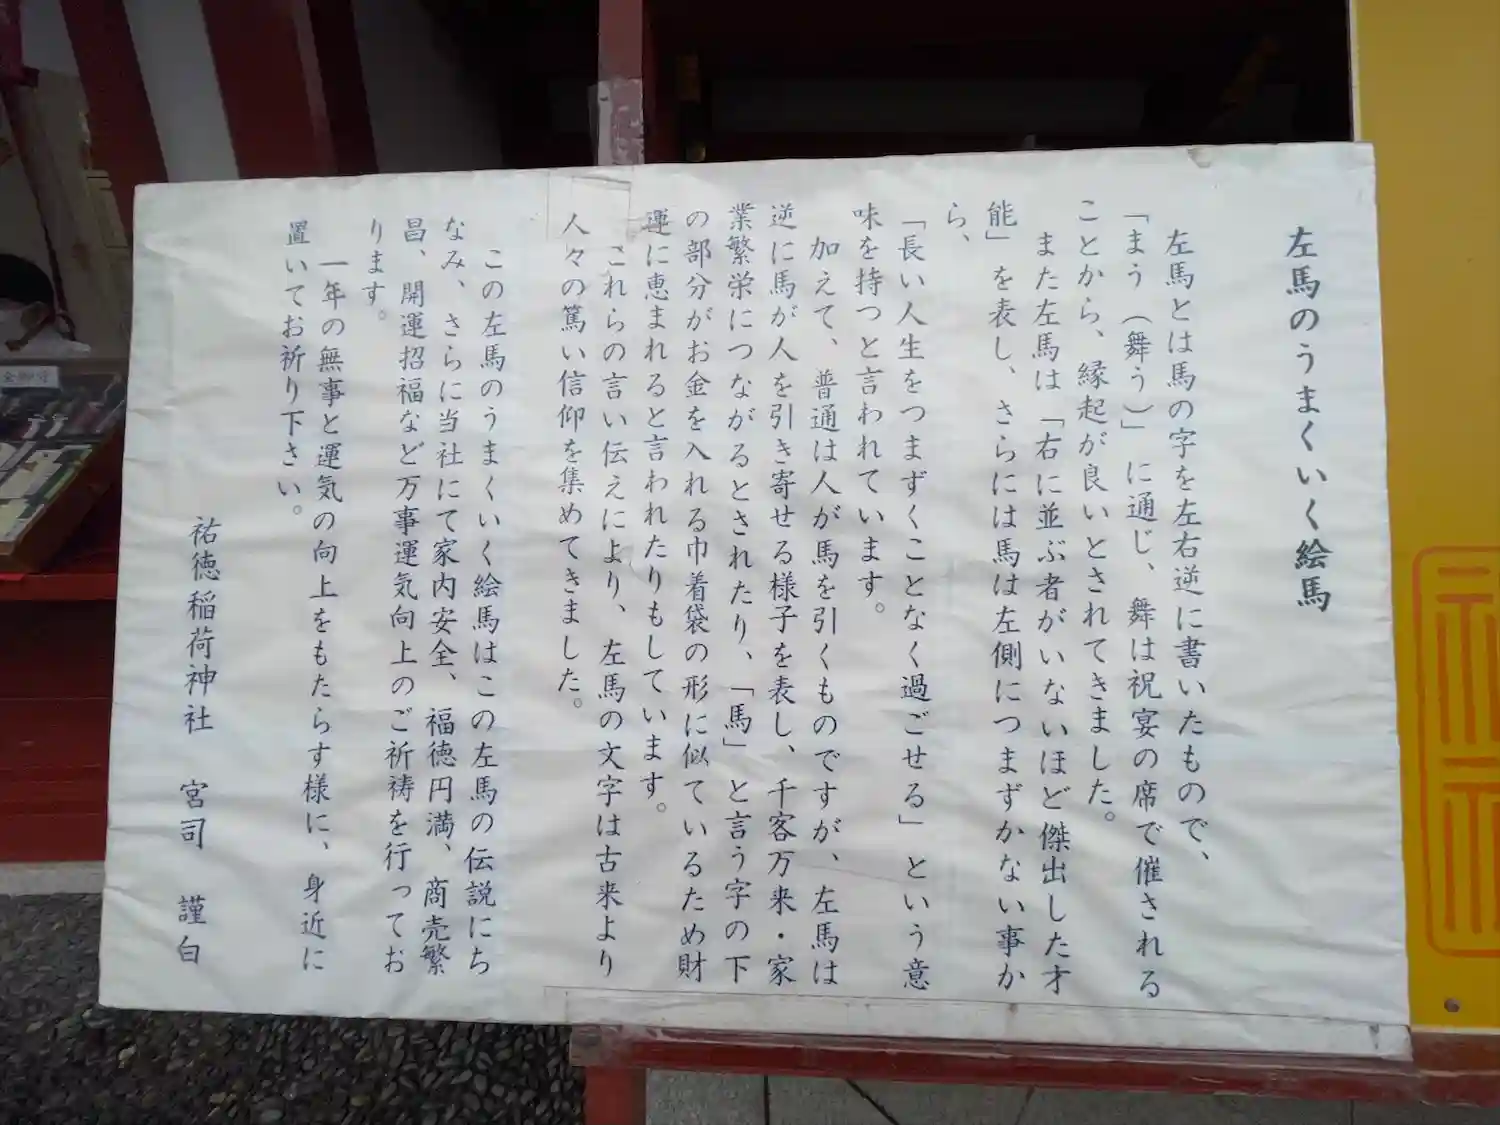 左馬のうまくいく絵馬
左馬とは馬の字を左右逆に書いたもので、
「まう（舞う）」に通じ、舞は祝宴の席で催される
ことから、縁起が良いとされてきました。
また左馬は「右に並ぶ者がいないほど傑出した才
能」を表し、さらには馬は左側につまずかない事か
ら、
「長い人生をつまずくことなく過ごせる」という意
味を持つと言われています。
加えて、普通は人が馬を引くものですが、左馬は
逆に馬が人を引き寄せる様子を表し、千客万来・家
業繁栄につながるとされたり、「馬」と言う字の下
の部分がお金を入れる巾着袋の形に似ているため財
運に恵まれると言われたりもしています。
これらの言い伝えにより、左馬の文字は古来より
人々の篤い信仰を集めてきました。
この左馬のうまくいく絵馬はこの左馬の伝説にち
なみ、さらに当社にて家内安全、福徳円満、商売繁
昌、開運招福など万事運気向上のご祈祷を行ってお
ります。
一年の無事と運気の向上をもたらす様に、身近に
置いてお祈り下さい。
祐徳稲荷神社　宮司　謹白